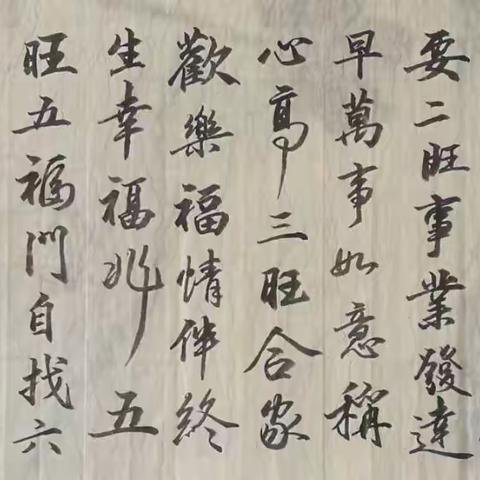 要二旺事業發達
早萬事如意稱
心亭三旺合家
歡樂福情伴終
生幸福兆五
旺五福門自找六